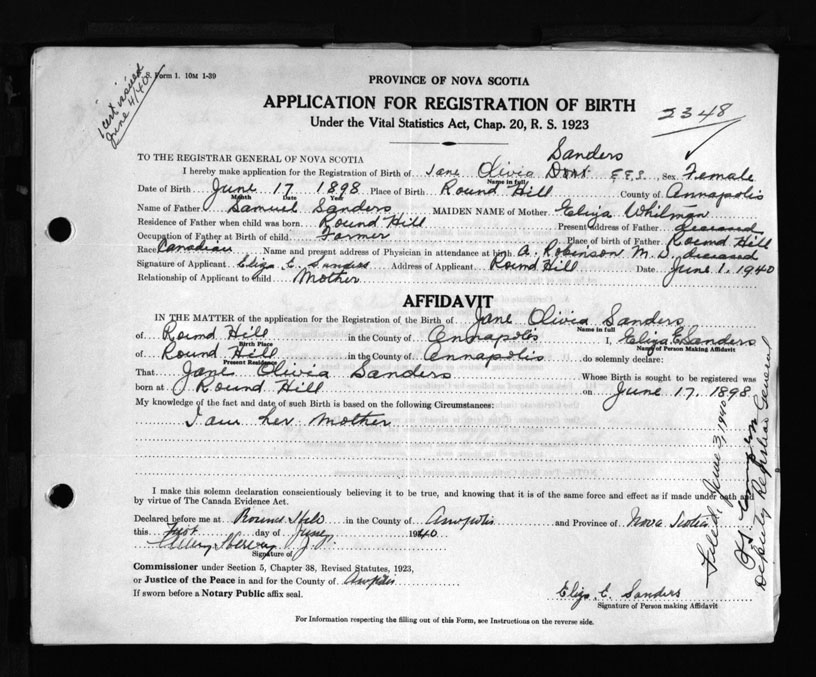 1 cert issued
June 4/40
S. Form 1. 10M 1-39
PROVINCE OF NOVA SCOTIA
APPLICATION FOR REGISTRATION OF BIRTH
2348
Under the Vital Statistics Act, Chap. 20, R. S. 1923
TO THE REGISTRAR GENERAL OF NOVA SCOTIA
Sanders
I hereby make application for the Registration of Birth of Jane Olivia Sex Female
Name in full
Date of Birth June 17 1898 Place of Birth Round Hill County of Annapolis
Month Date Year
Name of Father Samuel Sanders MAIDEN NAME of Mother Eliza Whitman
Residence of Father when child was born Round Hill Present Address of Father deceased
Occupation of Father at Birth of child Farmer Place of birth of Father Round Hill
Race Canadian Name and present address of Physician in attendance at birth A. Robinson M. D. deceased
Signature of Applicant Eliza E. Sanders Address of Applicant Round Hill Date June 1. 1940
Relationship of Applicant to child Mother
AFFIDAVIT
IN THE MATTER of the application for the Registration of the Birth of Jane Olivia Sanders
Name in full
of Round Hill in the County of Annapolis I, Eliza E Sanders
Birth Place Name of Person Making Affidavit
of Round Hill in the County of Annapolis do solemnly declare:
Present Residence
That Jane Olivia Sanders Whose Birth is sought to be registered was
born at Round Hill on June 17. 1898
My knowledge of the fact and date of such Birth is based on the following Circumstances:
I am her mother
I make this solemn declaration conscientiously believing it to be true, and knowing that it is of the same force and effect as if made under oath and
by virtue of The Canada Evidence Act.
Declared before me at Round Hill in the County of Annapolis and Province of Nova Scotia
this First day of June 1940
J. P.
Signature of
Commissioner under Section 5, Chapter 38, Revised Statutes, 1923,
or Justice of the Peace in and for the County of Annapolis
If sworn before a Notary Public affix seal.
Eliza E. Sanders
Signature of Person making Affidavit
For Information respecting the filling out of this Form, see Instructions on the reverse side.
Filed, June 3, 1940
Deputy Registrar General